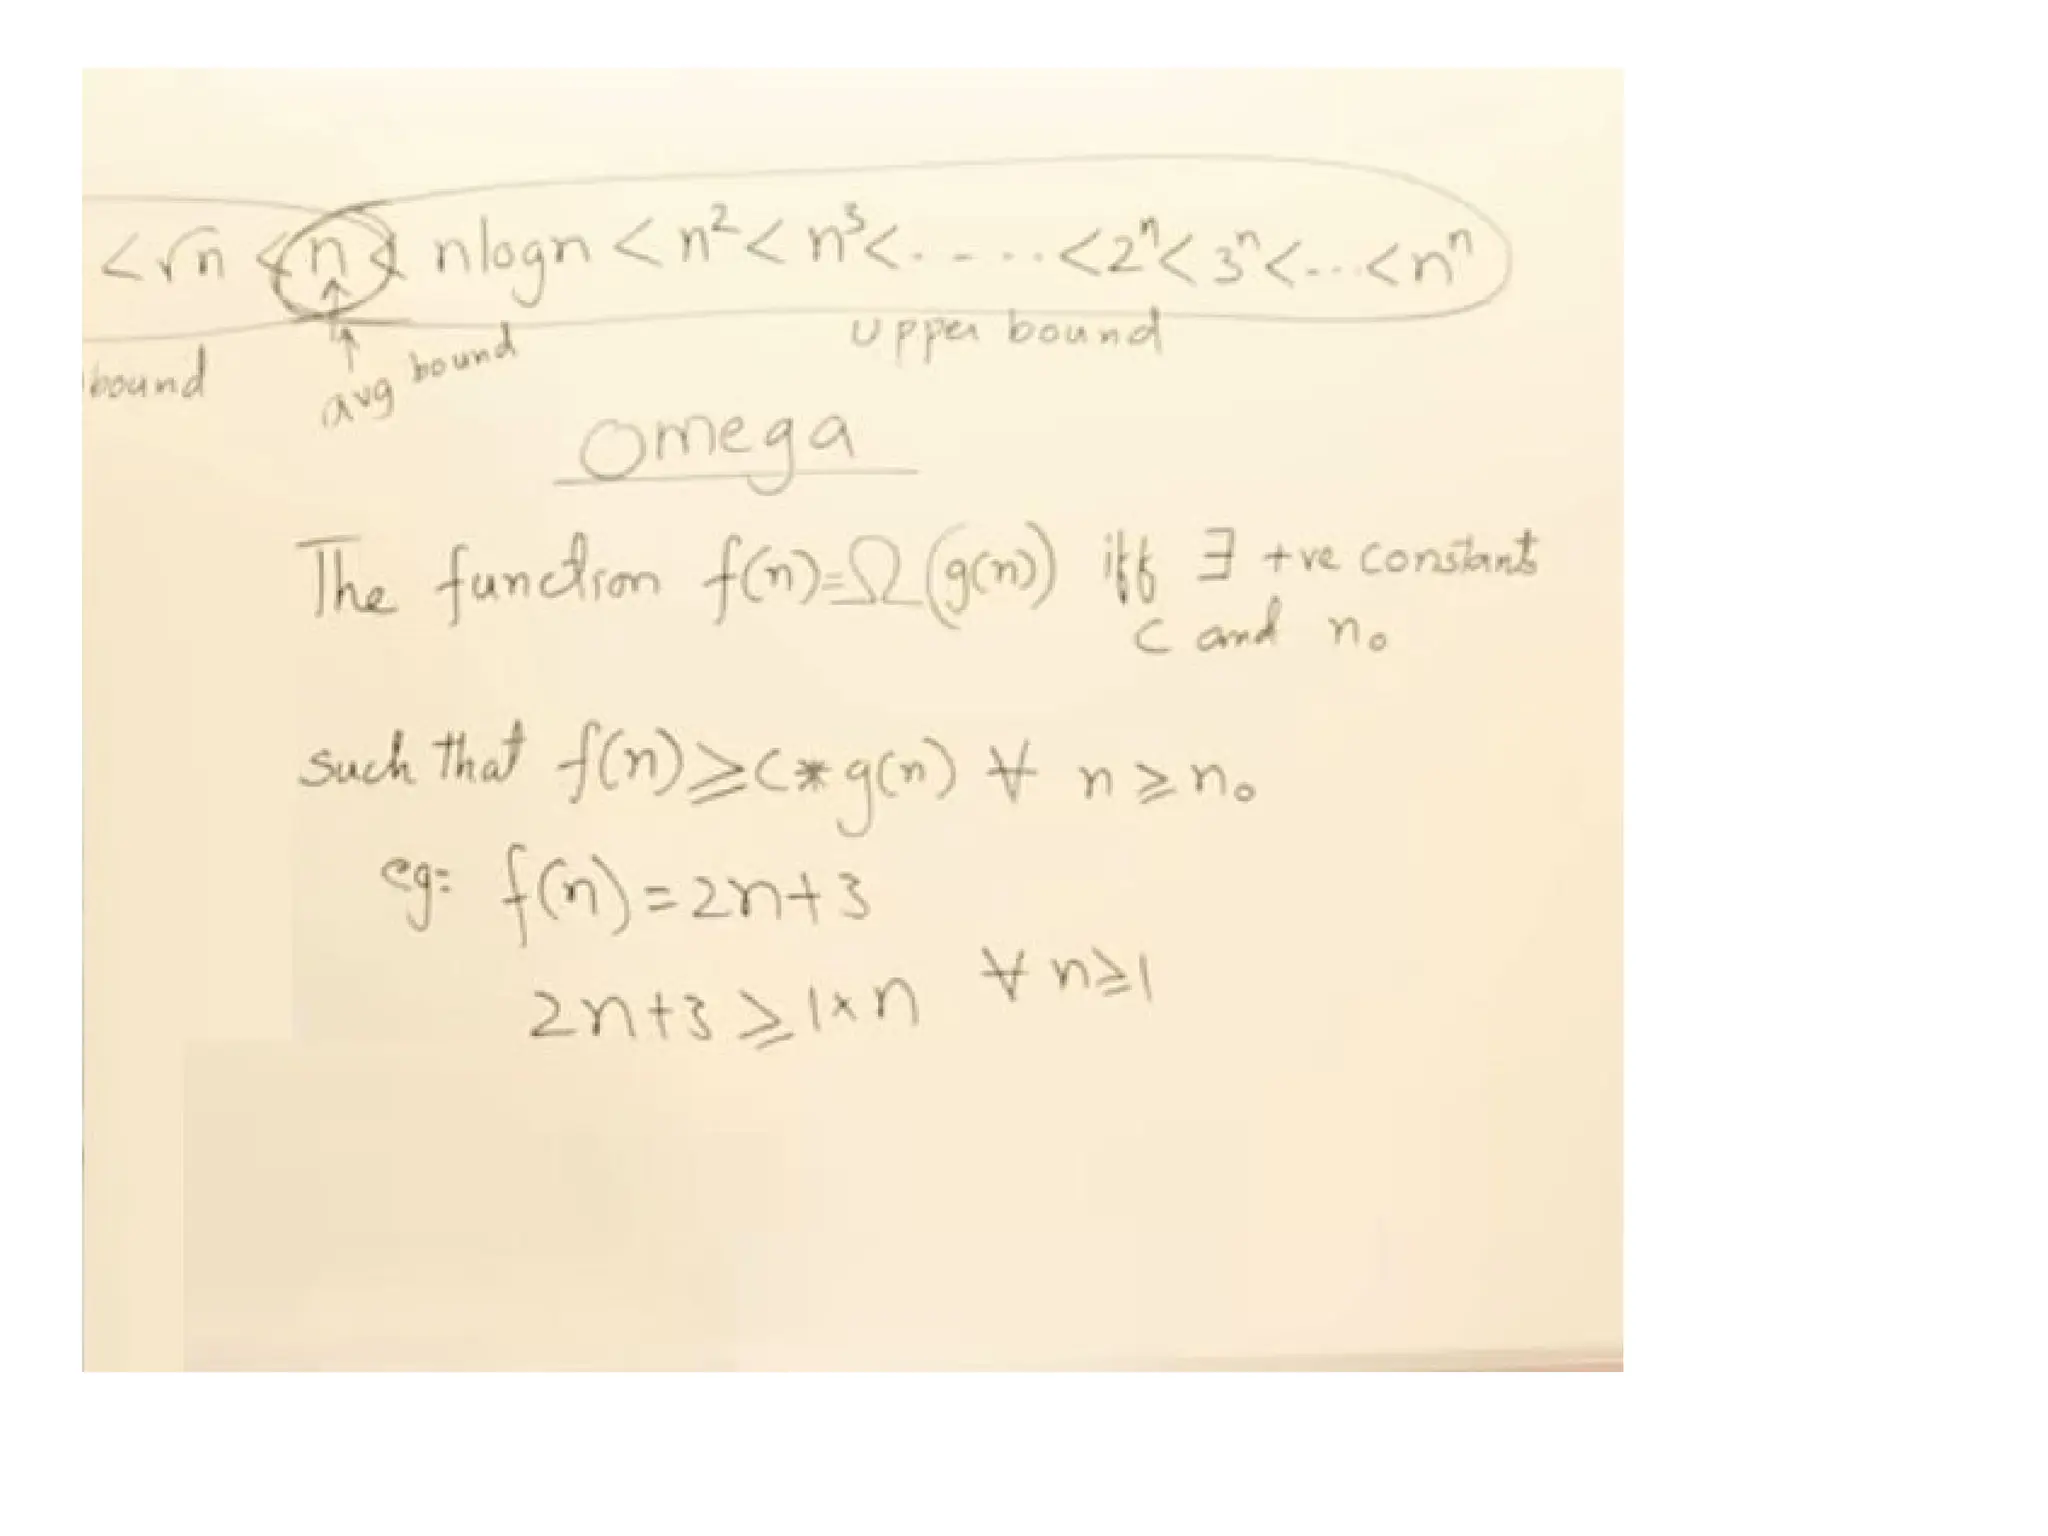 <√n < n < nlogn < n² < n³ < - - - - - < 2ⁿ < 3ⁿ < - - - < nⁿ
bound avg bound upper bound
Omega
The function f(n)=Ω(g(n)) iff ∃ +ve constants
c and n₀
such that f(n) ≥ c*g(n) ∀ n ≥ n₀
eg= f(n)=2n+3
2n+3 ≥ 1×n ∀ n≥1